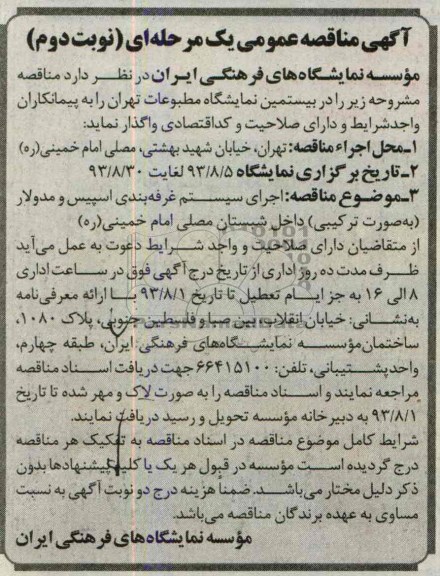 آگهی مناقصه عمومی یک مرحله‌ای (نوبت دوم)
مؤسسه نمایشگاه‌های فرهنگی ایران در نظر دارد مناقصه
مشروحه زیر را در بیستمین نمایشگاه مطبوعات تهران را به پیمانکاران
واجدشرایط و دارای صلاحیت و کداقتصادی واگذار نماید:
۱ـ محل اجراء مناقصه: تهران، خیابان شهید بهشتی، مصلی امام خمینی(ره)
۲ـ تاریخ برگزاری نمایشگاه ۹۳/۸/۵ لغایت ۹۳/۸/۳۰
۳ـ موضوع مناقصه: اجرای سیستم غرفه‌بندی اسپیس و مدولار
(به‌صورت ترکیبی) داخل شبستان مصلی امام خمینی(ره)
از متقاضیان دارای صلاحیت و واجد شرایط دعوت به عمل می‌آید
ظرف مدت ده روز اداری از تاریخ درج آگهی فوق در ساعت اداری
۸ الی ۱۶ به جز ایام تعطیل تا تاریخ ۹۳/۸/۱ با ارائه معرفی‌نامه
به‌نشانی: خیابان انقلاب، بین صبا و فلسطین جنوبی، پلاک ۱۰۸۰،
ساختمان مؤسسه نمایشگاه‌های فرهنگی ایران، طبقه چهارم،
واحدپشتیبانی، تلفن: ۶۶۴۱۵۱۰۰ جهت دریافت اسناد مناقصه
مراجعه نمایند و اسناد مناقصه را به صورت لاک و مهر شده تا تاریخ
۹۳/۸/۱ به دبیرخانه مؤسسه تحویل و رسید دریافت نمایند.
شرایط کامل موضوع مناقصه در اسناد مناقصه به تفکیک هر مناقصه
درج گردیده است مؤسسه در قبول هر یک یا کلیه پیشنهادها بدون
ذکر دلیل مختار می‌باشد. ضمناً هزینه درج دو نوبت آگهی به نسبت
مساوی به عهده برندگان مناقصه می‌باشد.
مؤسسه نمایشگاه‌های فرهنگی ایران